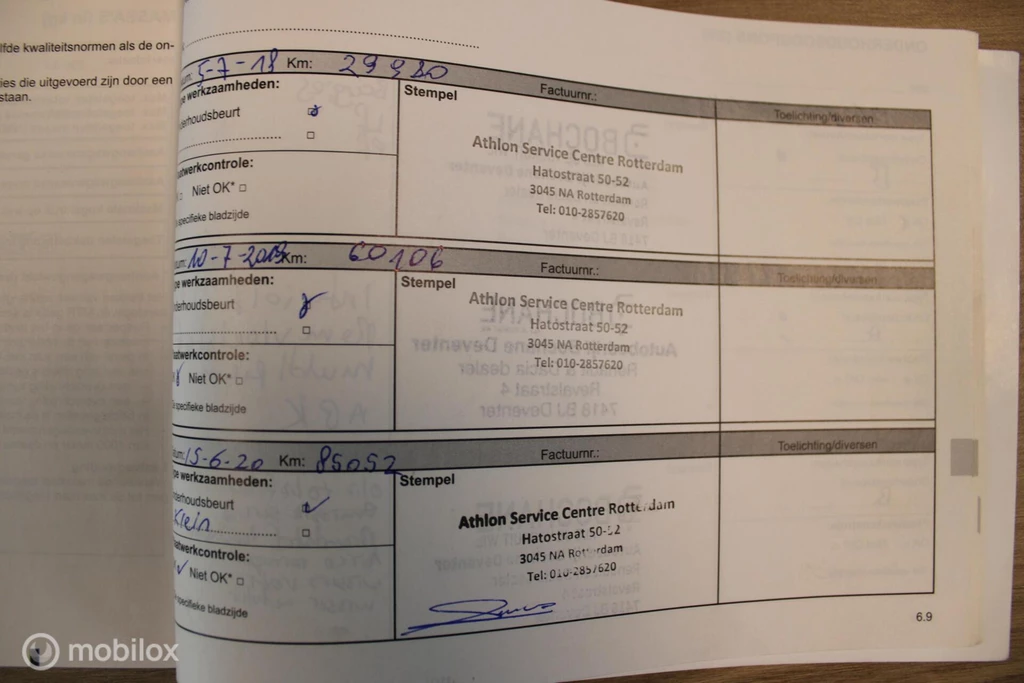 lfde kwaliteitsnormen als de on-
ies die uitgevoerd zijn door een
staan.
5-7-18 Km: 29980
werkzaamheden:
derhoudsbeurt
Stempel
Factuurnr.:
Toelichting/diversen
Athlon Service Centre Rotterdam
Hatostraat 50-52
3045 NA Rotterdam
Tel: 010-2857620
atwerkcontrole:
Niet OK* □
specifieke bladzijde
10-7-2019 Km: 60106
werkzaamheden:
derhoudsbeurt
Stempel
Factuurnr.:
Toelichting/diversen
Athlon Service Centre Rotterdam
Hatostraat 50-52
3045 NA Rotterdam
Tel: 010-2857620
atwerkcontrole:
Niet OK* □
specifieke bladzijde
15-6-20 Km: 85052
werkzaamheden:
derhoudsbeurt
Klein
Stempel
Factuurnr.:
Toelichting/diversen
Athlon Service Centre Rotterdam
Hatostraat 50-52
3045 NA Rotterdam
Tel: 010-2857620
atwerkcontrole:
Niet OK* □
specifieke bladzijde
6.9
mobilox